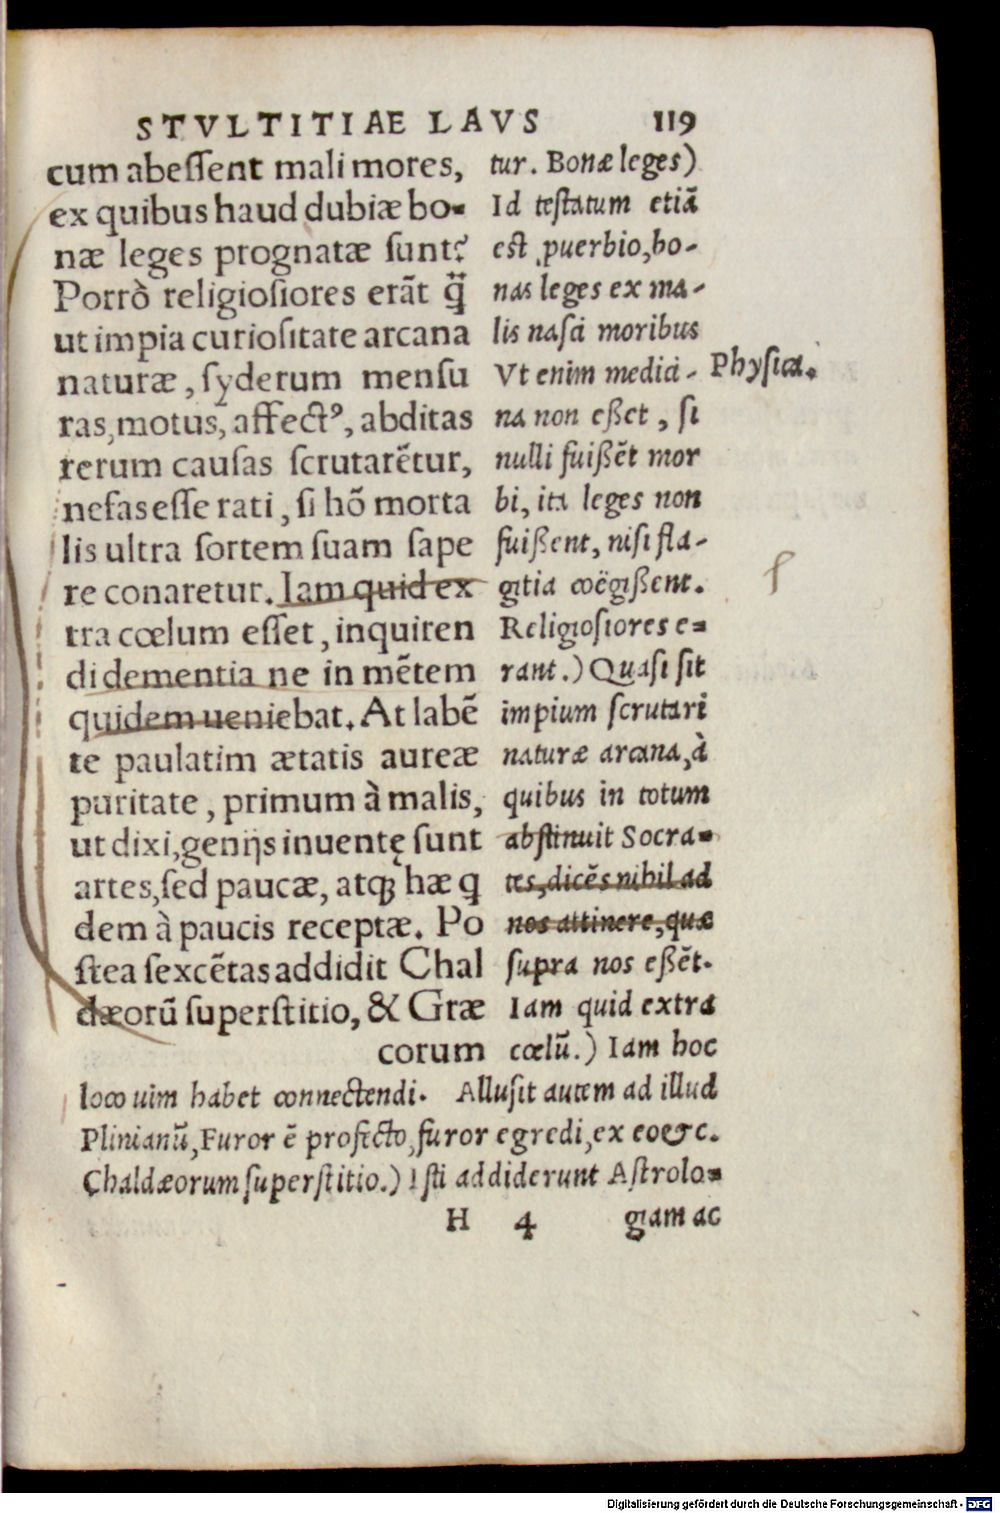 STVLTITIAE LAVS 119
cum abessent mali mores,
ex quibus haud dubiæ bo-
næ leges prognatæ sunt?
Porrò religiosiores erāt q̄̃
ut impia curiositate arcana
naturæ, syderum mensu
ras, motus, affectꝰ, abditas
rerum causas scrutarētur,
nefas esse rati, si hō morta
lis ultra sortem suam sape
re conaretur. Iam quid ex
tra cœlum esset, inquiren
di dementia ne in mētem
quidem ueniebat. At labē
te paulatim ætatis aureæ
puritate, primum à malis,
ut dixi, genijs inuentę sunt
artes, sed paucæ, atqꝫ hæ q
dem à paucis receptæ. Po
stea sexcētas addidit Chal
dæorū superstitio, & Græ
corum
tur. Bonæ leges)
Id testatum etiā
est ꝓuerbio, bo-
nas leges ex ma-
lis nasci moribus
Vt enim medici-
na non eßet, si
nulli fuißēt mor
bi, ita leges non
fuißent, nisi fla-
gitia coëgißent.
Religiosiores e-
rant.) Quasi sit
impium scrutari
naturæ arcana, à
quibus in totum
abstinuit Socra-
tes, dicēs nihil ad
nos attinere, quæ
supra nos eßēt.
Iam quid extra
cœlū.) Iam hoc
loco uim habet connectendi. Allusit autem ad illud
Plinianū, Furor ē profecto, furor egredi, ex eo &c.
Chaldæorum superstitio.) Isti addiderunt Astrolo-
H 4 giam ac
Physica.
Digitalisierung gefördert durch die Deutsche Forschungsgemeinschaft - DFG